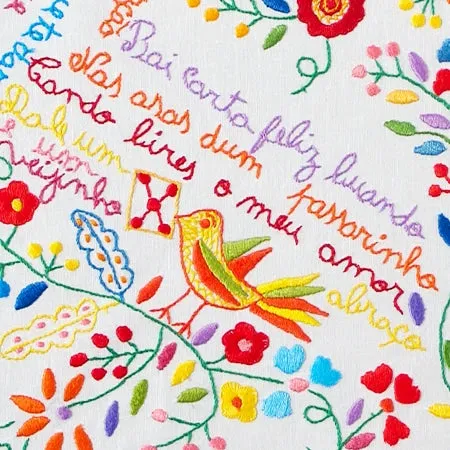 Bai carta feliz buando
Nas asas dum passarinho
Cando bires o meu amor
Dale um abraço
e um
Veijinho